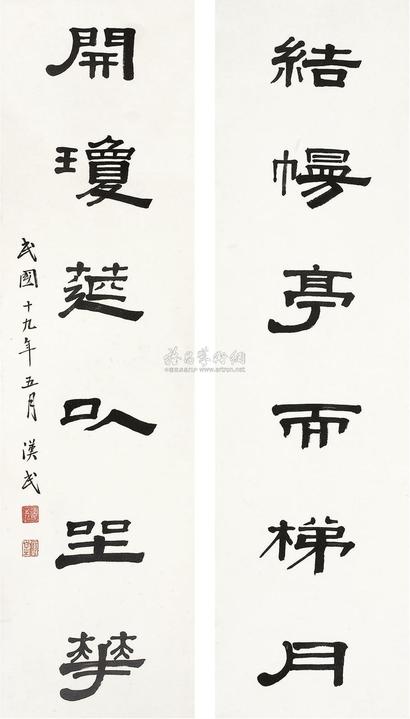 結幔亭而梯月
開瓊莚以坐華
民國十九年五月 漢民
雅昌藝術網
www.artron.net